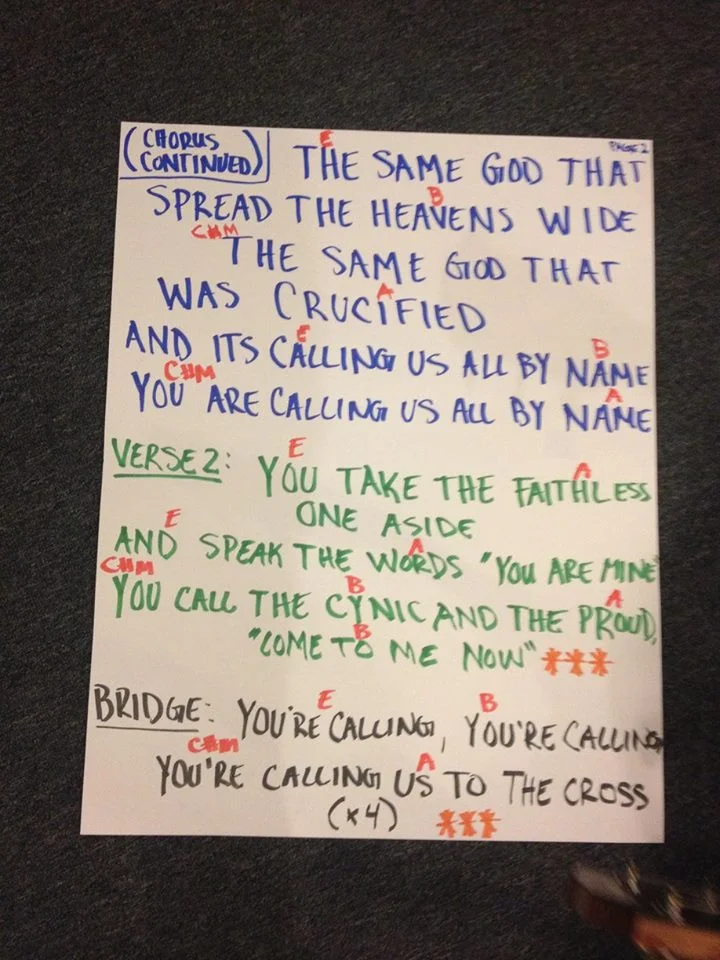 (CHORUS CONTINUED) PAGE 2
E
THE SAME GOD THAT
B
SPREAD THE HEAVENS WIDE
C#M
THE SAME GOD THAT
A
WAS CRUCIFIED
E B
AND ITS CALLING US ALL BY NAME
C#M A
YOU ARE CALLING US ALL BY NAME
E A
VERSE 2: YOU TAKE THE FAITHLESS
ONE ASIDE
E A
AND SPEAK THE WORDS "YOU ARE MINE"
C#M B A
YOU CALL THE CYNIC AND THE PROUD,
B
"COME TO ME NOW" ***
E B
BRIDGE: YOU'RE CALLING, YOU'RE CALLING
C#M A
YOU'RE CALLING US TO THE CROSS
(x4) ***